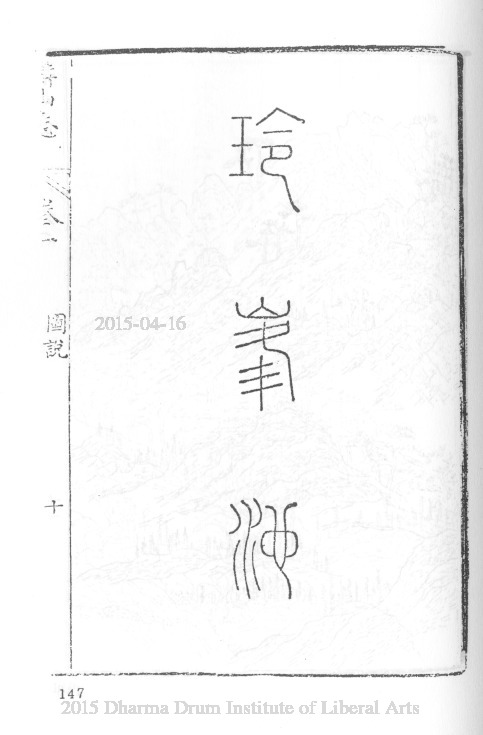 玲峯池
圖説
十
2015-04-16
147
2015 Dharma Drum Institute of Liberal Arts